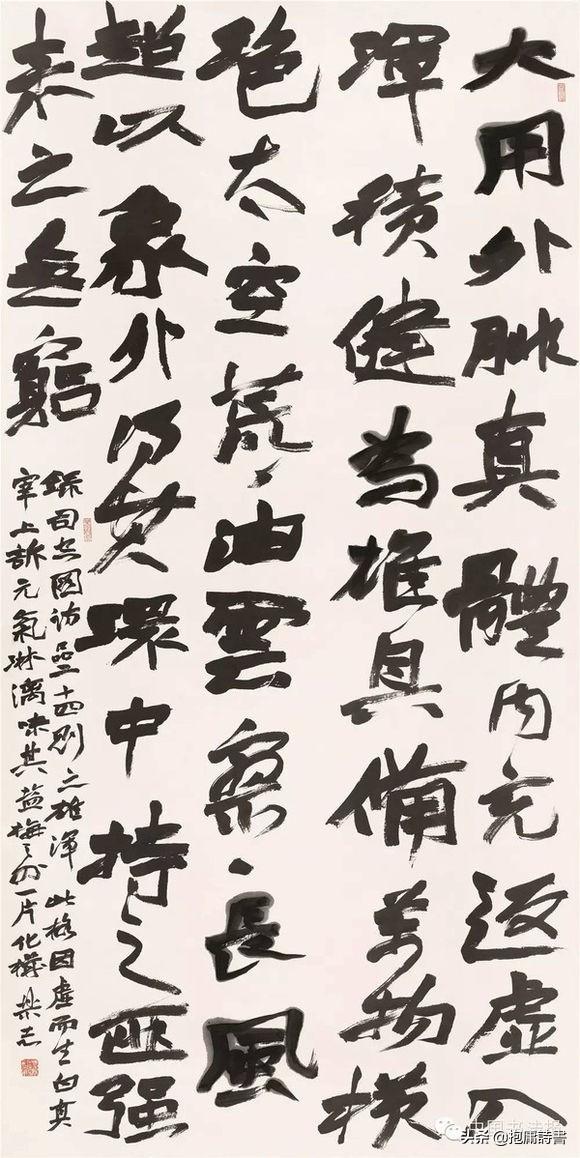 大用外腓真體内充返虛入
渾積健為雄具備萬物横
絶太空荒〻油雲寥〻長風
超以象外得其環中持之匪强
来之無窮
錄司空圖詩品二十四則之雄渾 此格因虛而生真
宰上訴元氣淋漓味其鹽梅之外一片化機
头条 @抱庸詩書